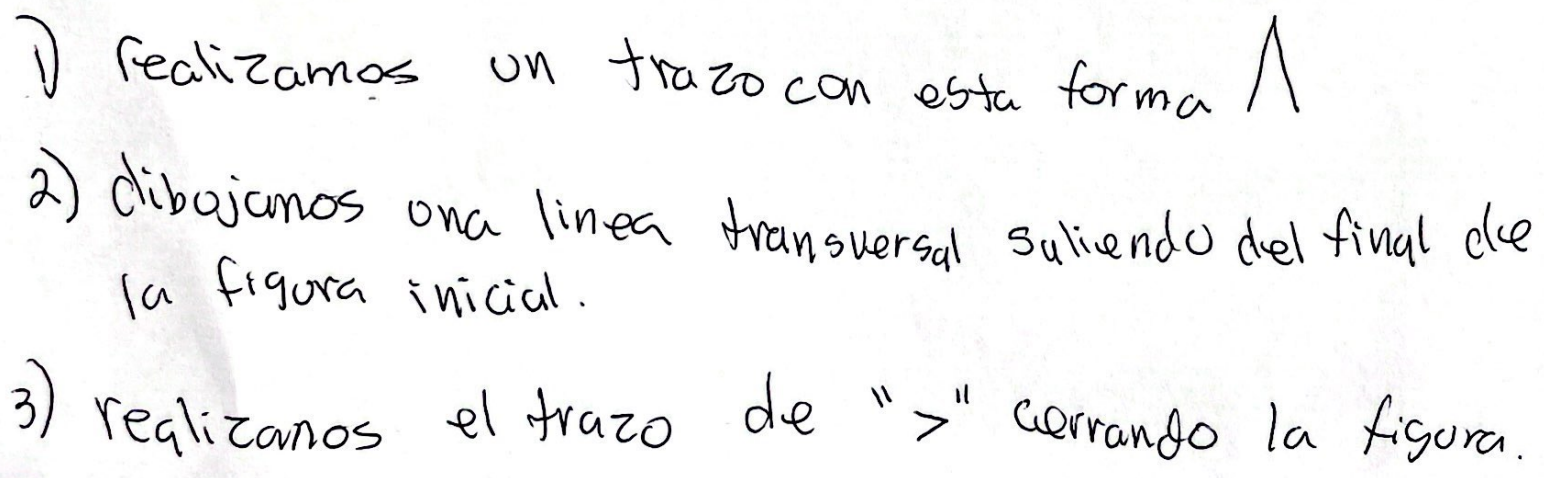 1) realizamos un trazo con esta forma Λ
2) dibujamos una linea transversal saliendo del final de
la figura inicial.
3) realizamos el trazo de ">" cerrando la figura.